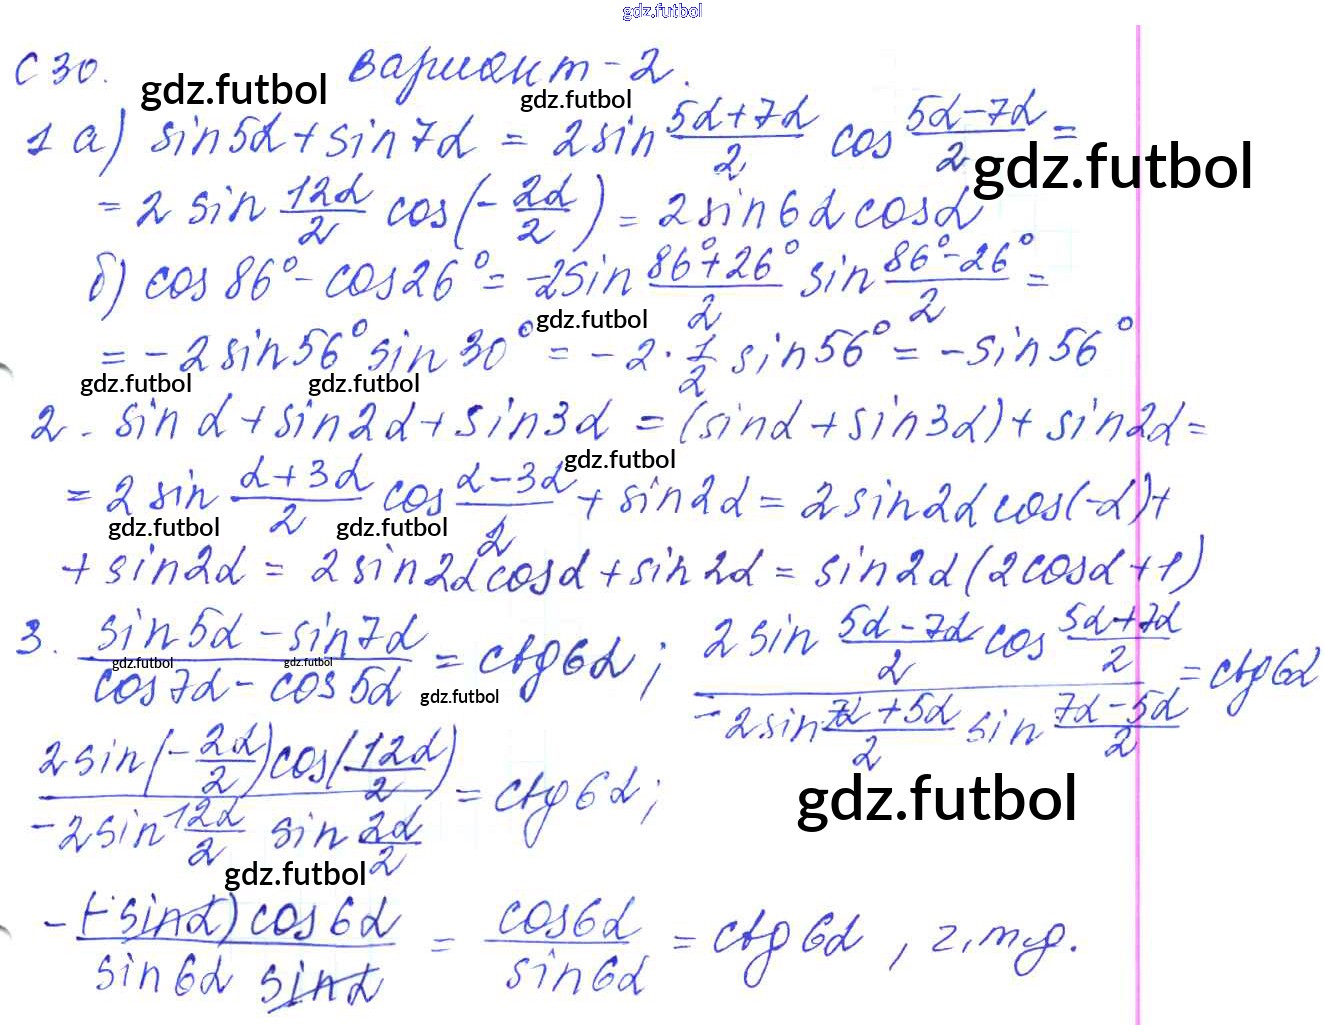 gdz.futbol
С 30. вариант - 2.
gdz.futbol gdz.futbol
1 а) sin5α + sin7α = 2 sin (5α+7α)/2 cos (5α−7α)/2 =
gdz.futbol
= 2 sin 12α/2 cos(−2α/2) = 2sin6α cosα
б) cos 86° − cos26° = −2sin (86°+26°)/2 sin (86°−26°)/2 =
gdz.futbol
= −2sin56° sin 30° = −2 · 1/2 sin56° = −sin56°
gdz.futbol gdz.futbol
2. sin α + sin2α + sin3α = (sinα + sin3α) + sin2α =
gdz.futbol
= 2 sin (α+3α)/2 cos (α−3α)/2 + sin2α = 2 sin2α cos(−α) +
gdz.futbol gdz.futbol
+ sin2α = 2 sin2α cosα + sin2α = sin2α (2cosα + 1)
3. (sin5α − sin7α)/(cos7α − cos5α) = ctg6α; (2 sin (5α−7α)/2 cos (5α+7α)/2)/(−2sin (7α+5α)/2 sin (7α−5α)/2) = ctg6α
gdz.futbol gdz.futbol gdz.futbol
(2sin(−2α/2)cos(12α/2))/(−2sin 12α/2 sin 2α/2) = ctg6α;
gdz.futbol
gdz.futbol
−(−sinα) cos6α/(sin6α sinα) = cos6α/sin6α = ctg6α, ч.т.д.